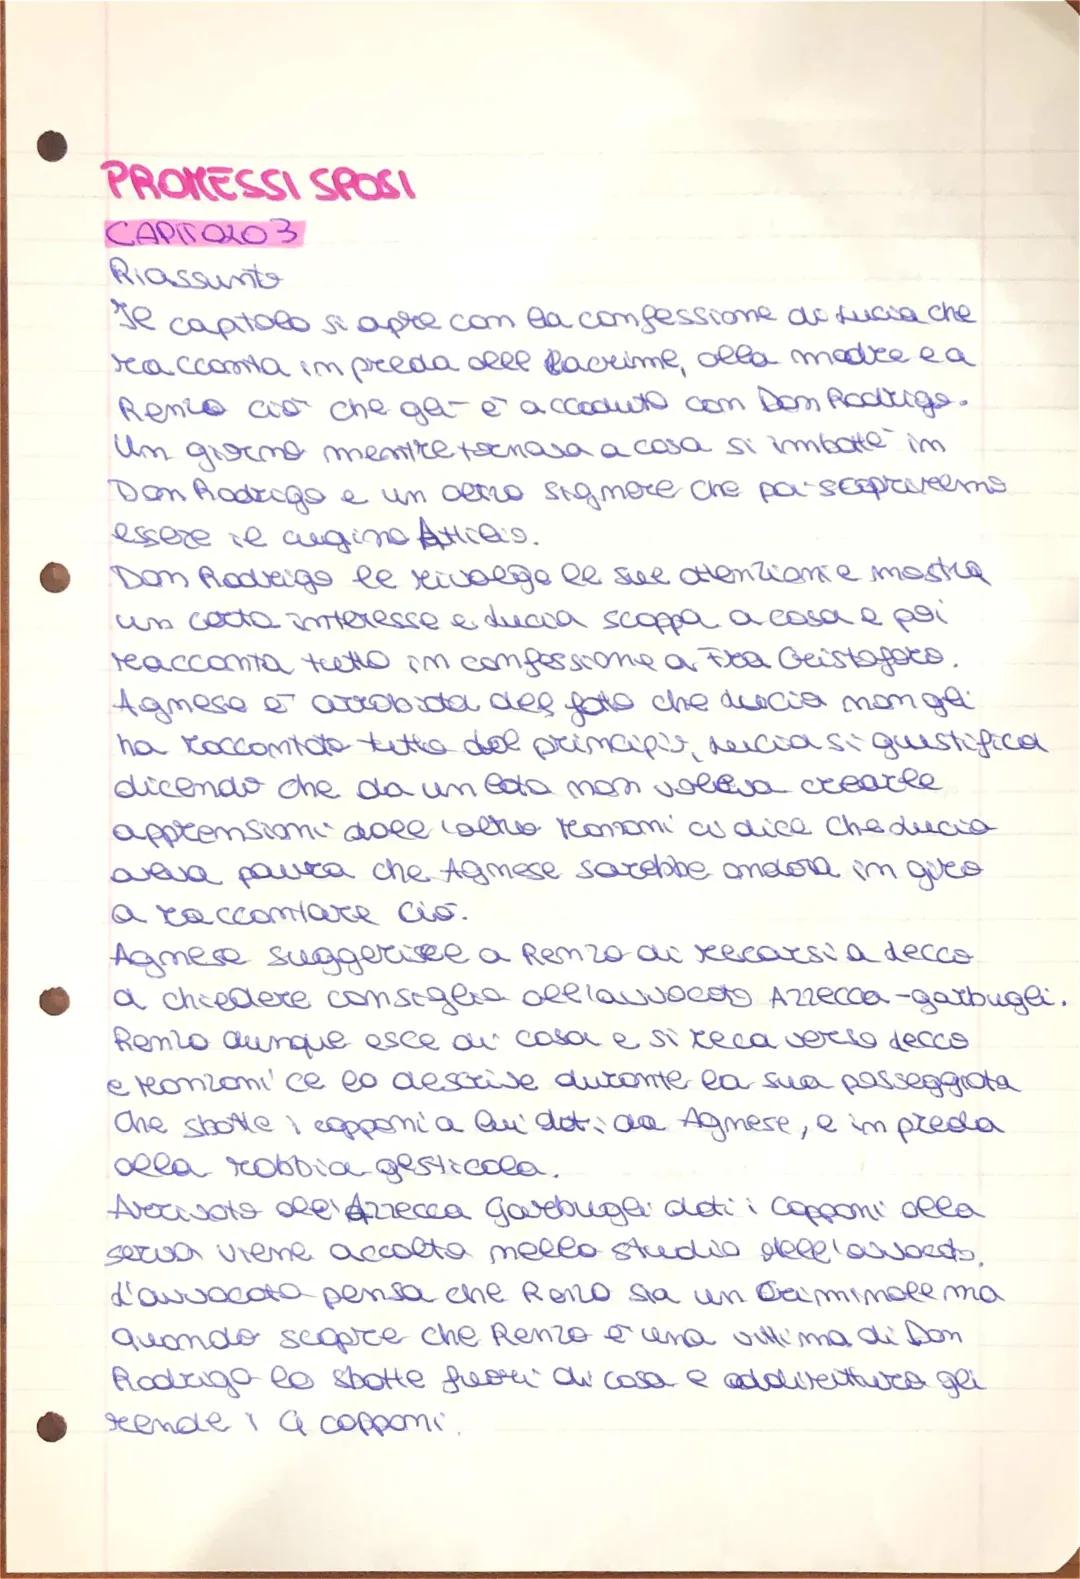 PROMESSI SPOSI
CAPITOLO 3
Riassunto
Il capitolo si apre con la confessione di Lucia che
racconta in preda alle lacrime, alla madre e a
Renzo ciò che gli è accaduto con Don Rodrigo.
Un giorno mentre tornava a casa si imbatté in
Don Rodrigo e un altro signore che poi scopriremo
essere il cugino Attilio.
Don Rodrigo le rivolge le sue attenzioni e mostra
un certo interesse e Lucia scappa a casa e poi
racconta tutto in confessione a Fra Cristoforo.
Agnese è arrabiata del fatto che Lucia non gli
ha raccontato tutto dal principio, Lucia si giustifica
dicendo che da un lato non voleva crearle
apprensioni dall'altro Manzoni ci dice che Lucia
aveva paura che Agnese sarebbe andata in giro
a raccontare ciò.
Agnese suggerisce a Renzo di recarsi a Lecco
a chiedere consiglio all'avvocato Azzecca-garbugli.
Renzo dunque esce di casa e si reca verso Lecco
e Manzoni ce lo descrive durante la sua passeggiata
che sbatte i capponi a lui dati da Agnese, e in preda
alla rabbia gesticola.
Arrivato all'Azzecca Garbugli dati i capponi alla
serva viene accolto nello studio dell'avvocato,
L'avvocato pensa che Renzo sia un criminale ma
quando scopre che Renzo è una vittima di Don
Rodrigo lo sbatte fuori di casa e addirittura gli
rende i 4 capponi.